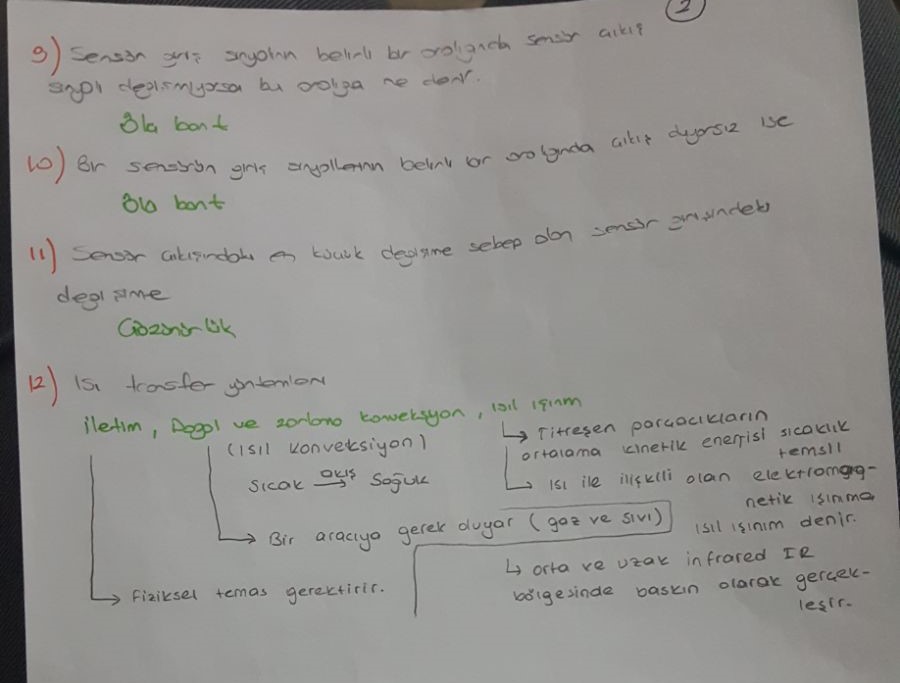 2
9) Sensör giriş sinyalinin belirli bir aralığında sensör çıkış
sinyali değişmiyorsa bu aralığa ne denir.
Ölü bant
10) Bir sensörün giriş sinyallerinin belirli bir aralığında çıkış duyarsız ise
Ölü bant
11) Sensör çıkışındaki en küçük değişime sebep olan sensör girişindeki
değişime
Çözünürlük
12) Isı transfer yöntemleri
iletim, Doğal ve zorlama konveksiyon, ısıl ışınım
(ısıl konveksiyon)
sıcak akış → soğuk
↳ Titreşen parçacıkların
ortalama kinetik enerjisi sıcaklık
temsili
↳ ısı ile ilişkili olan elektromag-
netik ışınıma
ısıl ışınım denir.
→ Bir aracıya gerek duyar (gaz ve sıvı)
↳ orta ve uzak infrared IR
bölgesinde baskın olarak gerçek-
leşir.
→ fiziksel temas gerektirir.